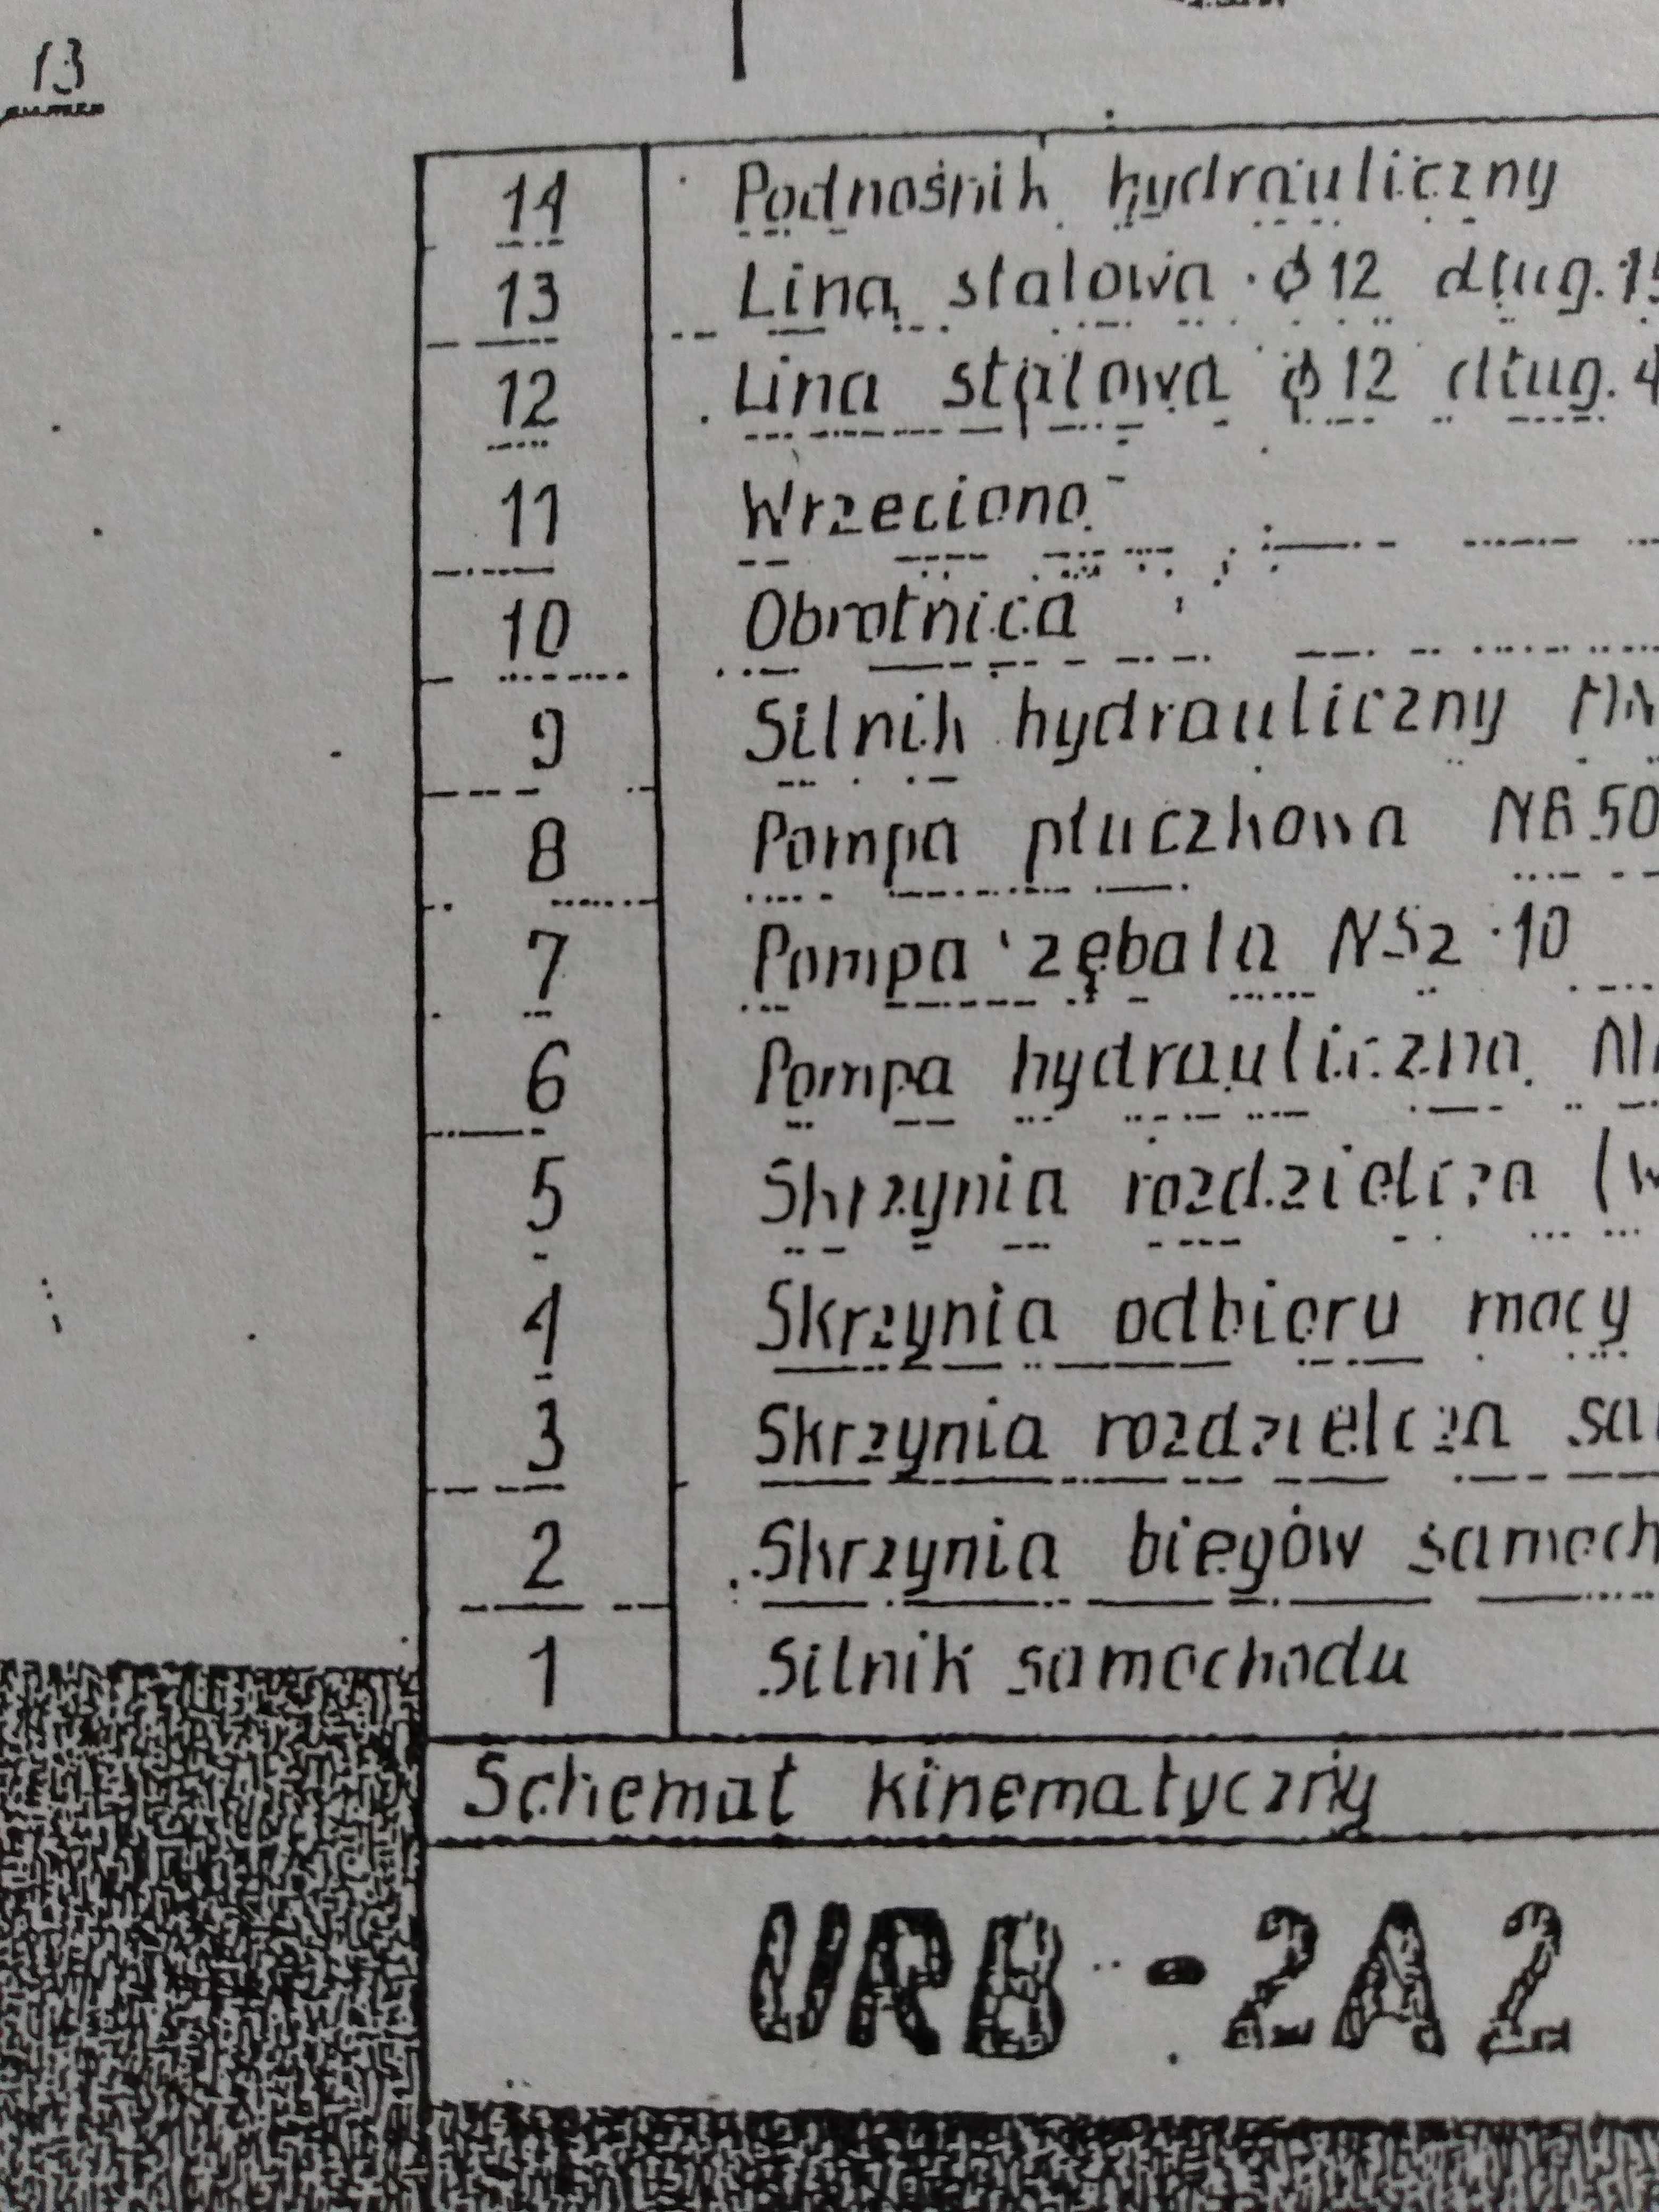 13
14 Podnośnik hydrauliczny
13 Lina stalowa ϕ12 dług.
12 Lina stalowa ϕ12 dług.
11 Wrzeciono
10 Obrotnica
9 Silnik hydrauliczny
8 Pompa płuczkowa
7 Pompa zębata NSz-10
6 Pompa hydrauliczna
5 Skrzynia rozdzielcza
4 Skrzynia odbioru mocy
3 Skrzynia rozdzielcza
2 Skrzynia biegów
1 Silnik samochodu
Schemat kinematyczny
URB-2A2